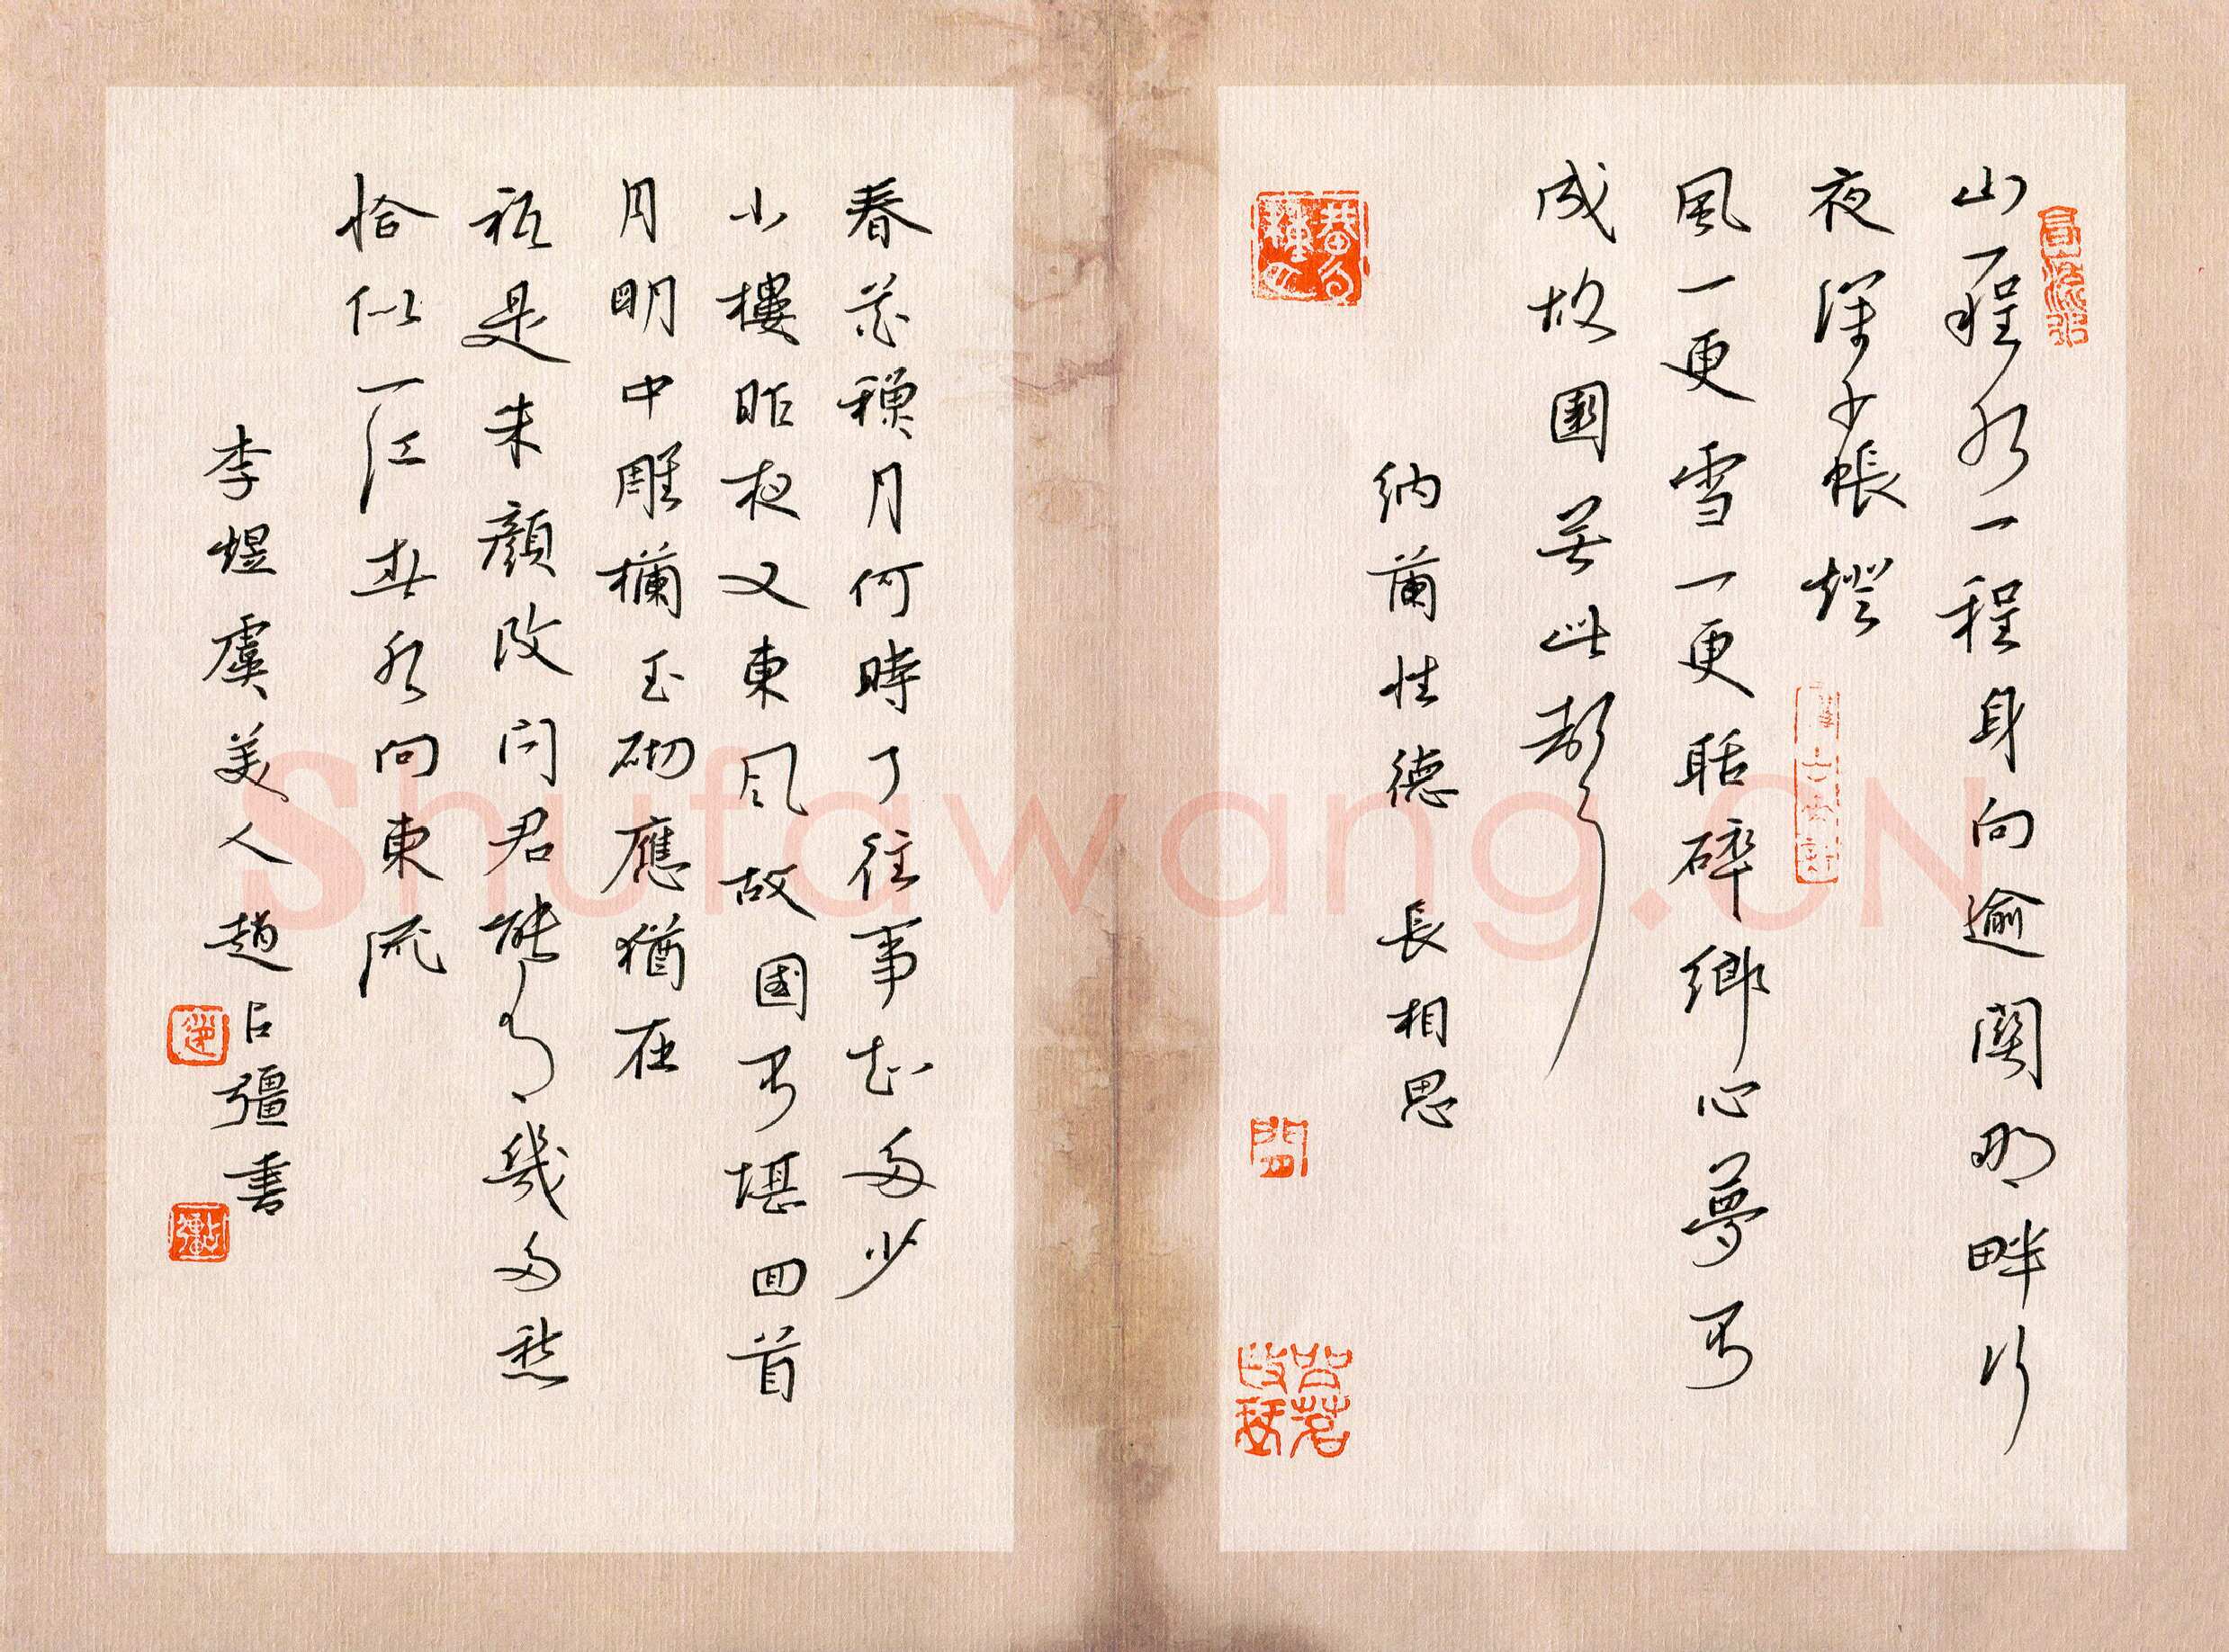 山一程水一程身向逾關那畔行
夜深千帳燈
風一更雪一更聒碎鄉心夢不
成故園無此聲
納蘭性德 長相思
春花穐月何時了往事知多少
小樓昨夜又東風故國不堪回首
月明中雕欄玉砌應猶在
祇是朱顏改問君能有幾多愁
恰似一江春水向東流
李煜虞美人趙占彊書
Shufawang.CN